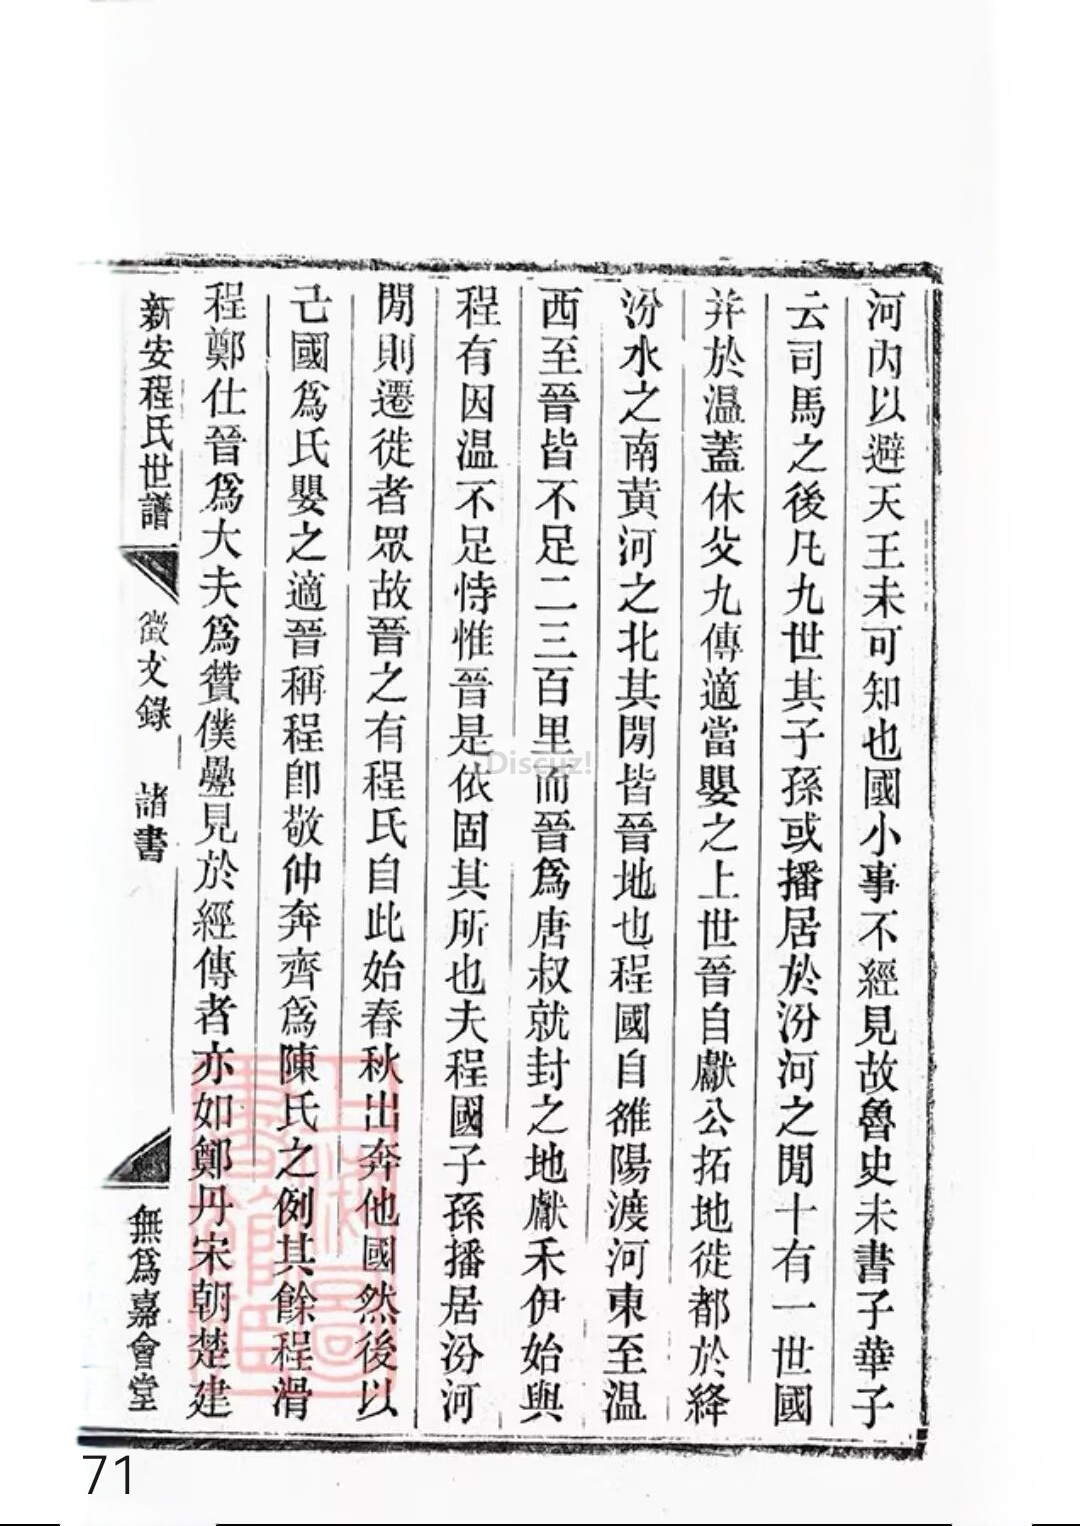 河內以避天王未可知也國小事不經見故魯史未書子華子
云司馬之後凡九世其子孫或播居於汾河之閒十有一世國
并於温蓋休父九傳適當嬰之上世晉自獻公拓地徙都於絳
汾水之南黃河之北其閒皆晉地也程國自雒陽渡河東至温
西至晉皆不足二三百里而晉爲唐叔就封之地獻禾伊始與
程有因温不足恃惟晉是依固其所也夫程國子孫播居汾河
閒則遷徙者眾故晉之有程氏自此始春秋出奔他國然後以
亡國爲氏嬰之適晉稱程卽敬仲奔齊爲陳氏之例其餘程滑
程鄭仕晉爲大夫爲贊僕疊見於經傳者亦如鄭丹宋朝楚建
新安程氏世譜
徵文錄
諸書
無爲嘉會堂
Discuz!
71